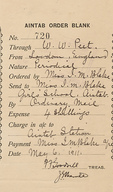 AINTAB ORDER BLANK
No. 720
Through W. W. Peet,
From London, England
Nature Periodical
Ordered by Miss I. M. Blake
Send to Miss I. M. Blake
Girls' School, Aintab
By Ordinary Mail
Expense 4 Shillings
Charge in a/c to
Aintab Station
Payment Miss I. M. Blake
Date Mar 6, 1911
TREAS.